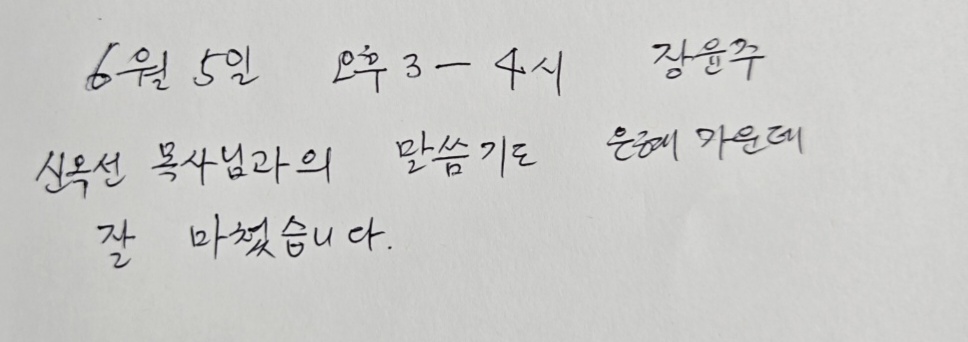 6월 5일 오후 3 - 4시 장윤주
신옥선 목사님과의 말씀기도 은혜 가운데
잘 마쳤습니다.